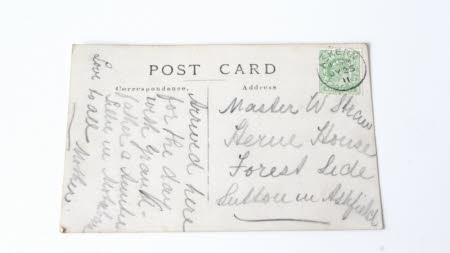 POST CARD
Correspondence.
Address
Arrived here
for the day
with Grand-
father & Auntie
in
Love to all
Mother.
Master W Straw
Herne House
Forest Side
Sutton in Ashfield
11